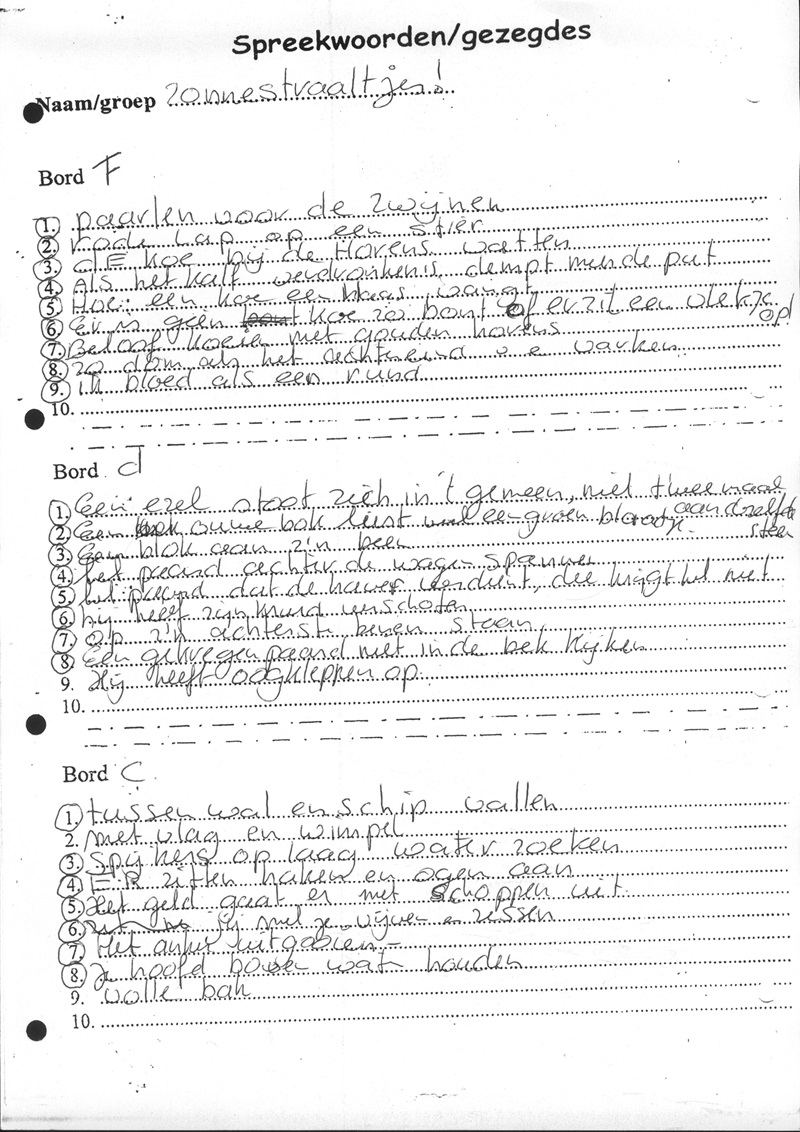 Spreekwoorden/gezegdes
Naam/groep zonnestraaltjes!
Bord F
1. paarlen voor de zwijnen
2. rode lap op een stier
3. de koe bij de Horens vatten
4. Als het kalf verdronken is, dempt men de put
5. Hoe een koe een haas vangt
6. Er is geen koe zo bont of er zit een vlekje op!
7. Beloof koeien met gouden horens
8. zo dom als het achtereind v e varken
9. ik bloed als een rund
10.
Bord d
1. Een ezel stoot zich in 't gemeen, niet tweemaal
aan dezelfde steen
2. Een ouwe bok lust wel een groen blaadje
3. Een blok aan z'n been
4. het paard achter de wagen spannen
5. het paard dat de haver verdient, die krijgt het niet
6. hij heeft zijn kruid verschoten
7. Op z'n achterste benen staan
8. Een gekregen paard niet in de bek kijken
9. Hij heeft oogkleppen op
10.
Bord C
1. tussen wal en schip vallen
2. met vlag en wimpel
3. Spijkers op laag water zoeken
4. Er zitten haken en ogen aan
5. Het geld gaat er met schoppen uit
6. bij met je vijven en zessen
7. Het anker uitgooien
8. Je hoofd boven wat houden
9. volle bak
10.